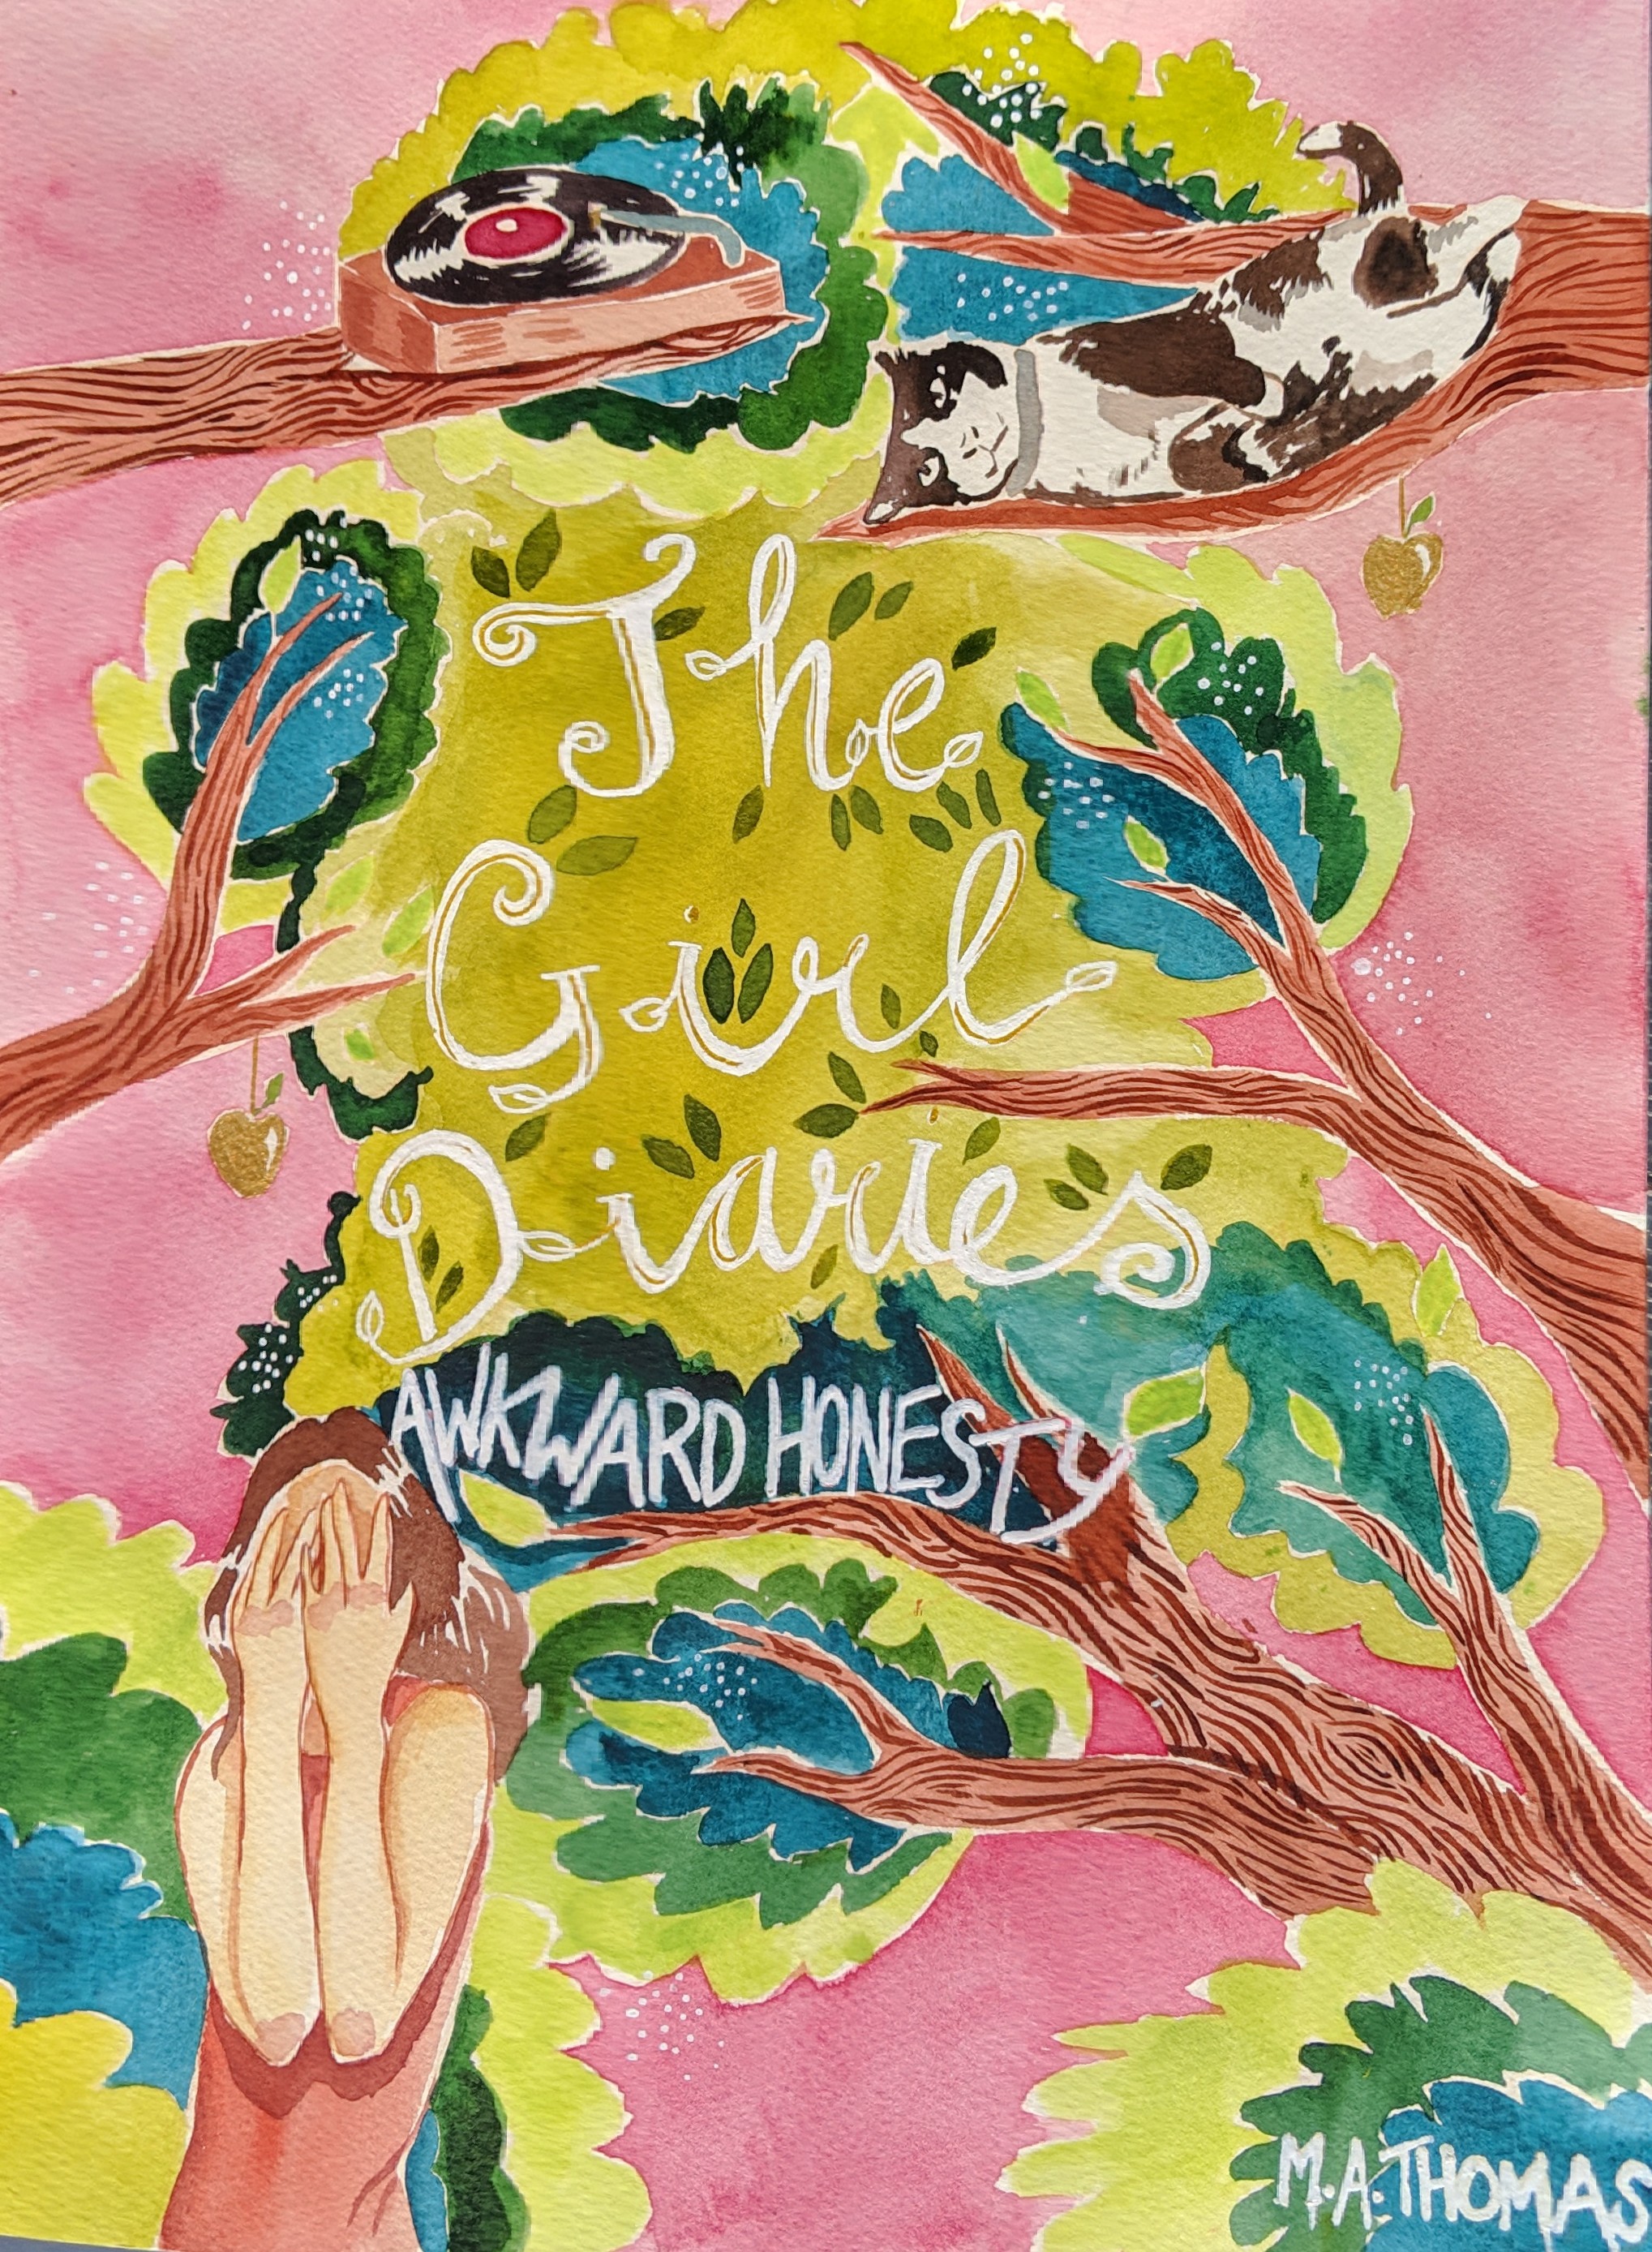 The
Girl
Diaries
AWKWARD HONESTY
M.A. THOMAS